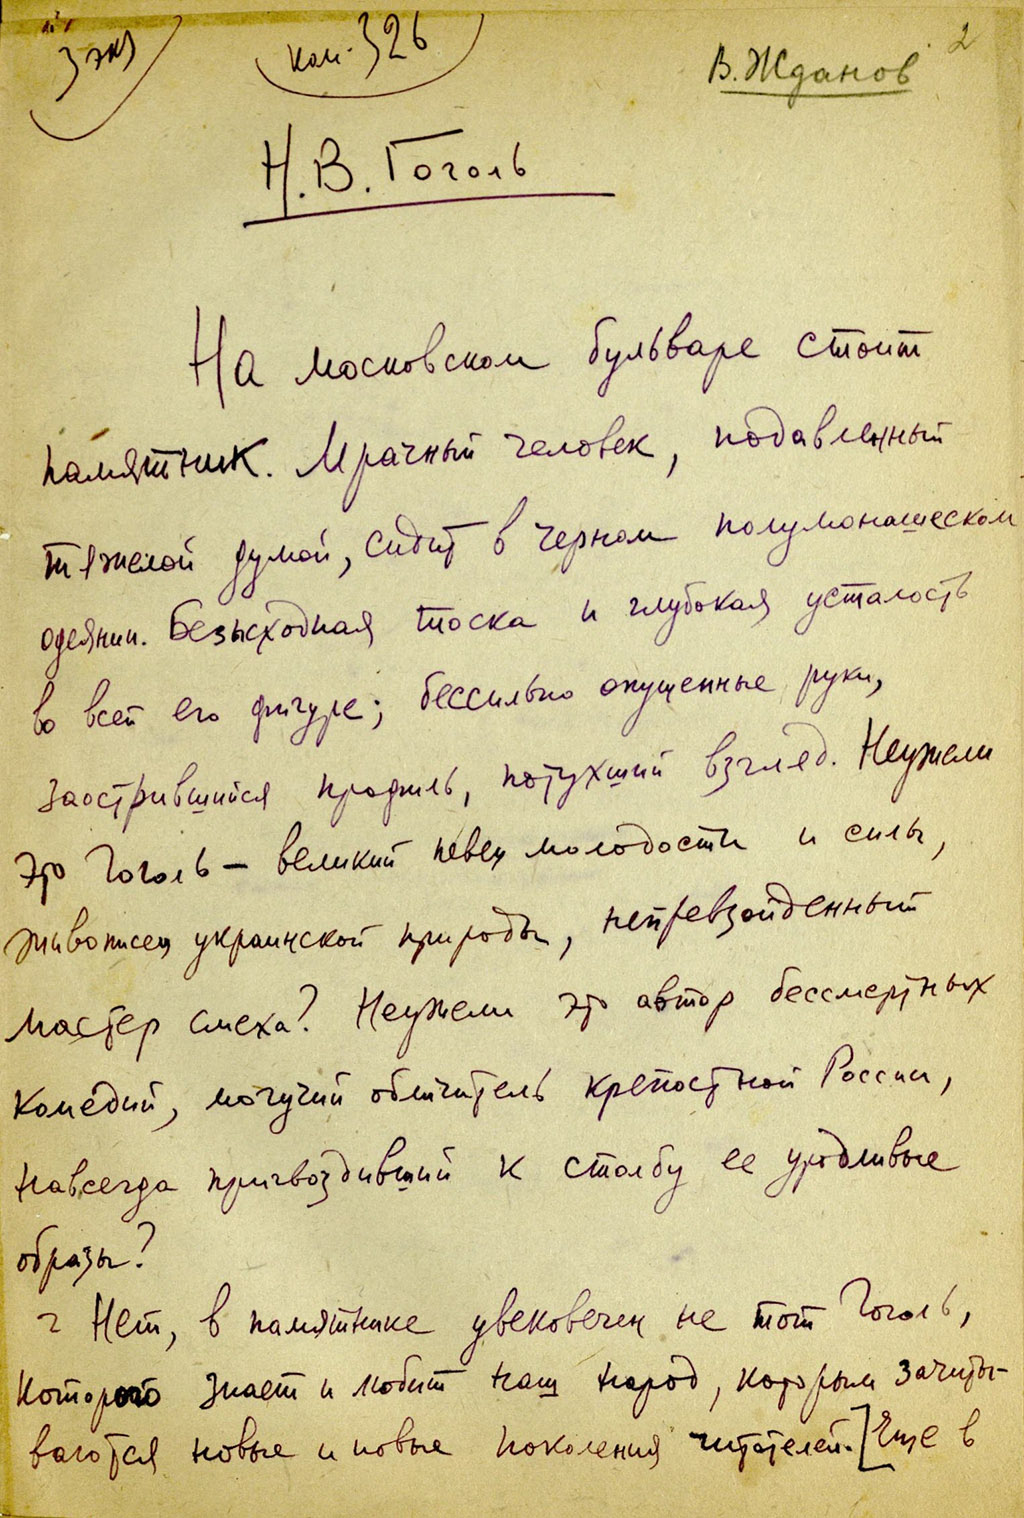 3 экз
Кол. 326
2
В. Жданов
Н. В. Гоголь
На московском бульваре стоит
памятник. Мрачный человек, подавленный
тяжелой думой, сидит в черном полумонашеском
одеянии. Безысходная тоска и глубокая усталость
во всей его фигуре; бессильно опущенные руки,
заострившийся профиль, потухший взгляд. Неужели
это Гоголь – великий певец молодости и силы,
живописец украинской природы, непревзойденный
мастер смеха? Неужели это автор бессмертных
комедий, могучий обличитель крепостной России,
навсегда пригвоздивший к столбу ее уродливые
образы?
Нет, в памятнике увековечен не тот Гоголь,
которого знает и любит наш народ, которым зачиты-
ваются новые и новые поколения читателей. [Еще в